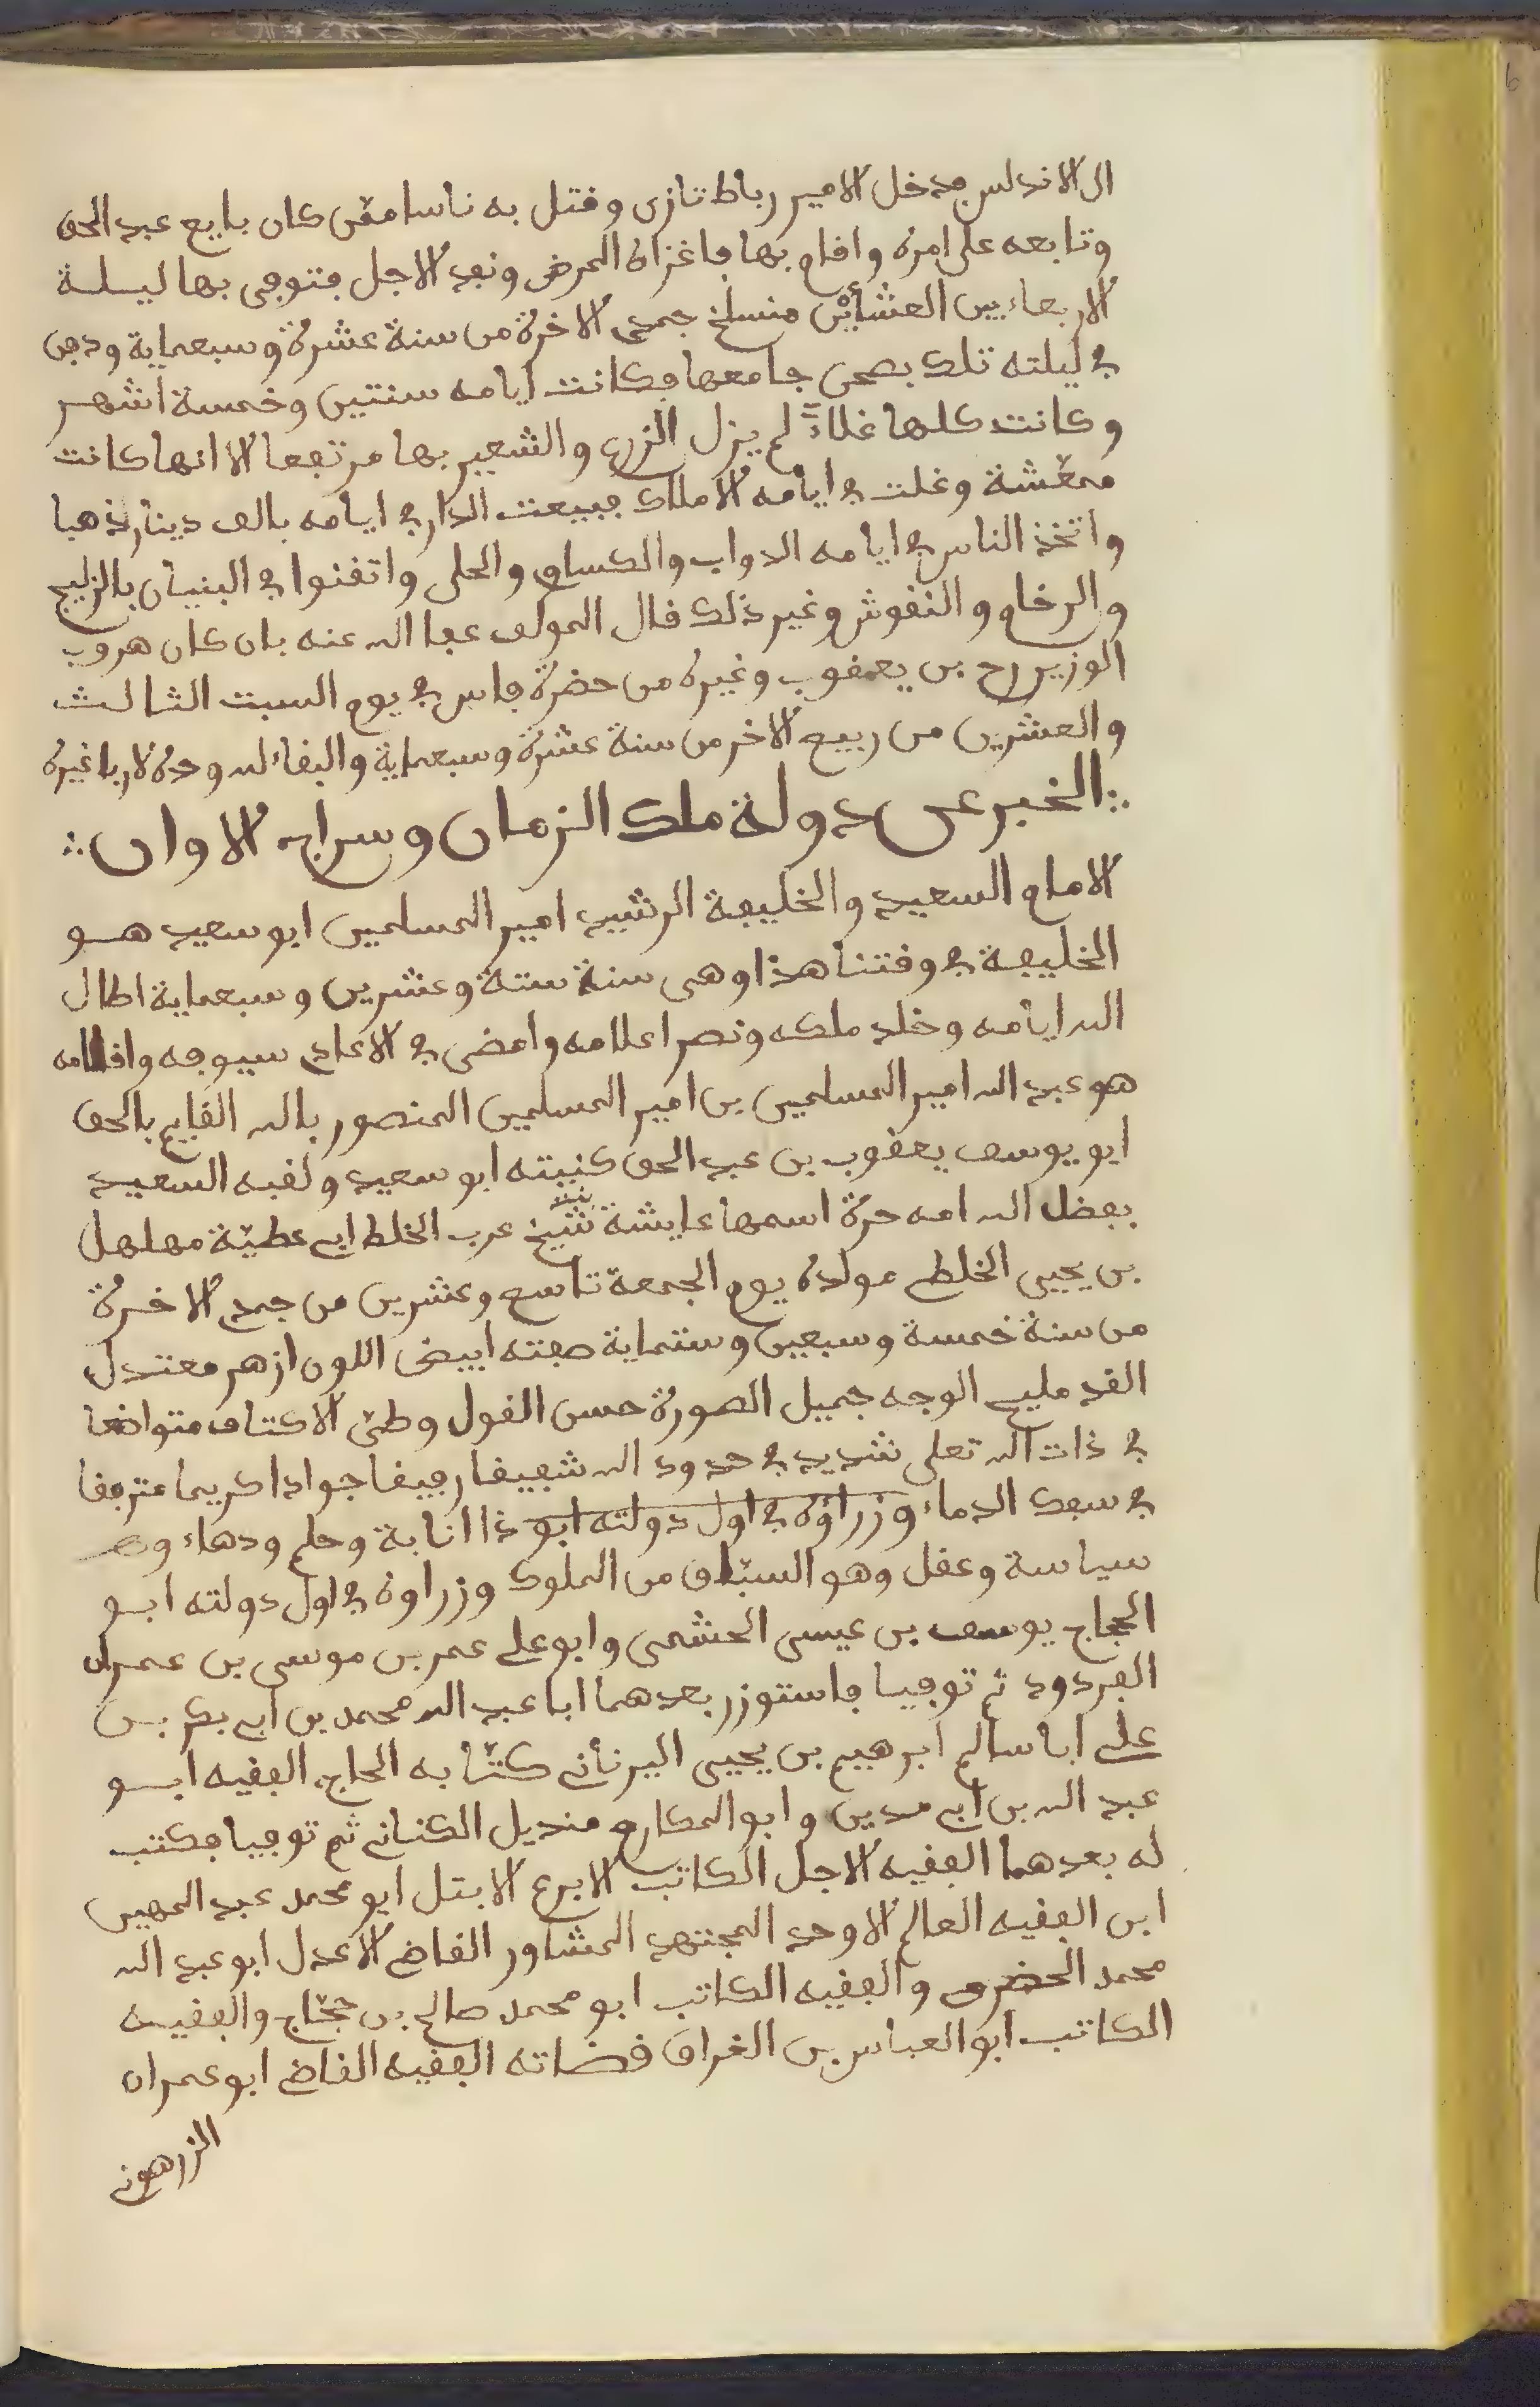 الى الاندلس فدخل الامير رباط تازى وقتل به ناسا ممّن كان بايع عبد الحق
وتابعه على امره واقام بها فاغزاه المرض ونفد الاجل فتوفى بها ليلة
الاربعاء بين العشائين منسلخ جمدى الاخرة من سنة عشرة وسبعماية ودفن
فى ليلته تلك بصحن جامعها فكانت ايامه سنتين وخمسة اشهر
وكانت كلها غلاءً لم يزل الزرع والشعير بها مرتفعا الا انها كانت
ممعّشة وغلت فى ايامه الاملاك فبيعت الدار فى ايامه بالف دينار ذهبا
واتخذ الناس فى ايامه الدواب والكساوى والحلى واتقنوا فى البنيان بالزليج
والرخام والنقوش وغير ذلك قال المولف عفا الله عنه بان كان هروب
الوزير رح بن يعقوب وغيره من حضرة فاس فى يوم السبت الثالث
والعشرين من ربيع الاخر من سنة عشرة وسبعماية والبقاء لله وحده لا ربا غيره
الخبر عن دولة ملك الزمان وسراج الاوان
الامام السعيد والخليفة الرشيد امير المسلمين ابو سعيد هو
الخليفة فى وقتنا هذا وهى سنة ستة وعشرين وسبعماية اطال
الله ايامه وخلد ملكه ونصر اعلامه وامضى فى الاعادى سيوفه واقلامه
هو عبد الله امير المسلمين بن امير المسلمين المنصور بالله القايم بالحق
ابو يوسف يعقوب بن عبد الحق كنيته ابو سعيد ولقبه السعيد
بفضل الله امه حرة اسمها عايشة بنت شيخ عرب الخلط ابى عطيّة مهلهل
بن يحيى الخلطى مولده يوم الجمعة تاسع وعشرين من جمدى الاخرة
من سنة خمسة وسبعين وستماية صفته ابيض اللون ازهر معتدل
القد مليح الوجه جميل الصورة حسن القول وطىّ الاكتاف متواضعا
فى ذات الله تعلى شديد فى حدود الله شفيقا رفيقا جوادا كريما متوقفا
فى سفك الدماء وزراؤه فى اول دولته ابو ذا انابة وحلم ودهاء
سياسة وعقل وهو السبّاق من الملوك وزراوه فى اول دولته ابو
الحجاج يوسف بن عيسى الحشمى وابو على عمر بن موسى بن عمران
الفردود ثم توفيا فاستوزر بعدهما ابا عبد الله محمد بن ابى بكر بن
على ابا سالم ابرهيم بن يحيى اليرنأنى كتّابه الحاج الفقيه ابو
عبد الله بن ابى مدين وابو المكارم منديل الكنانى ثم توفيا فكتب
له بعدهما الفقيه الاجل الكاتب الابرع الابتل ابو محمد عبد المهيمن
ابن الفقيه العالم الاوحد المجتهد المشاور القاضى الاعدل ابو عبد الله
محمد الحضرمى والفقيه الكاتب ابو محمد صالح بن حجّاج والفقيه
الكاتب ابو العباس بن الغراق قضاته الفقيه القاضى ابو عمران
الزرهونى